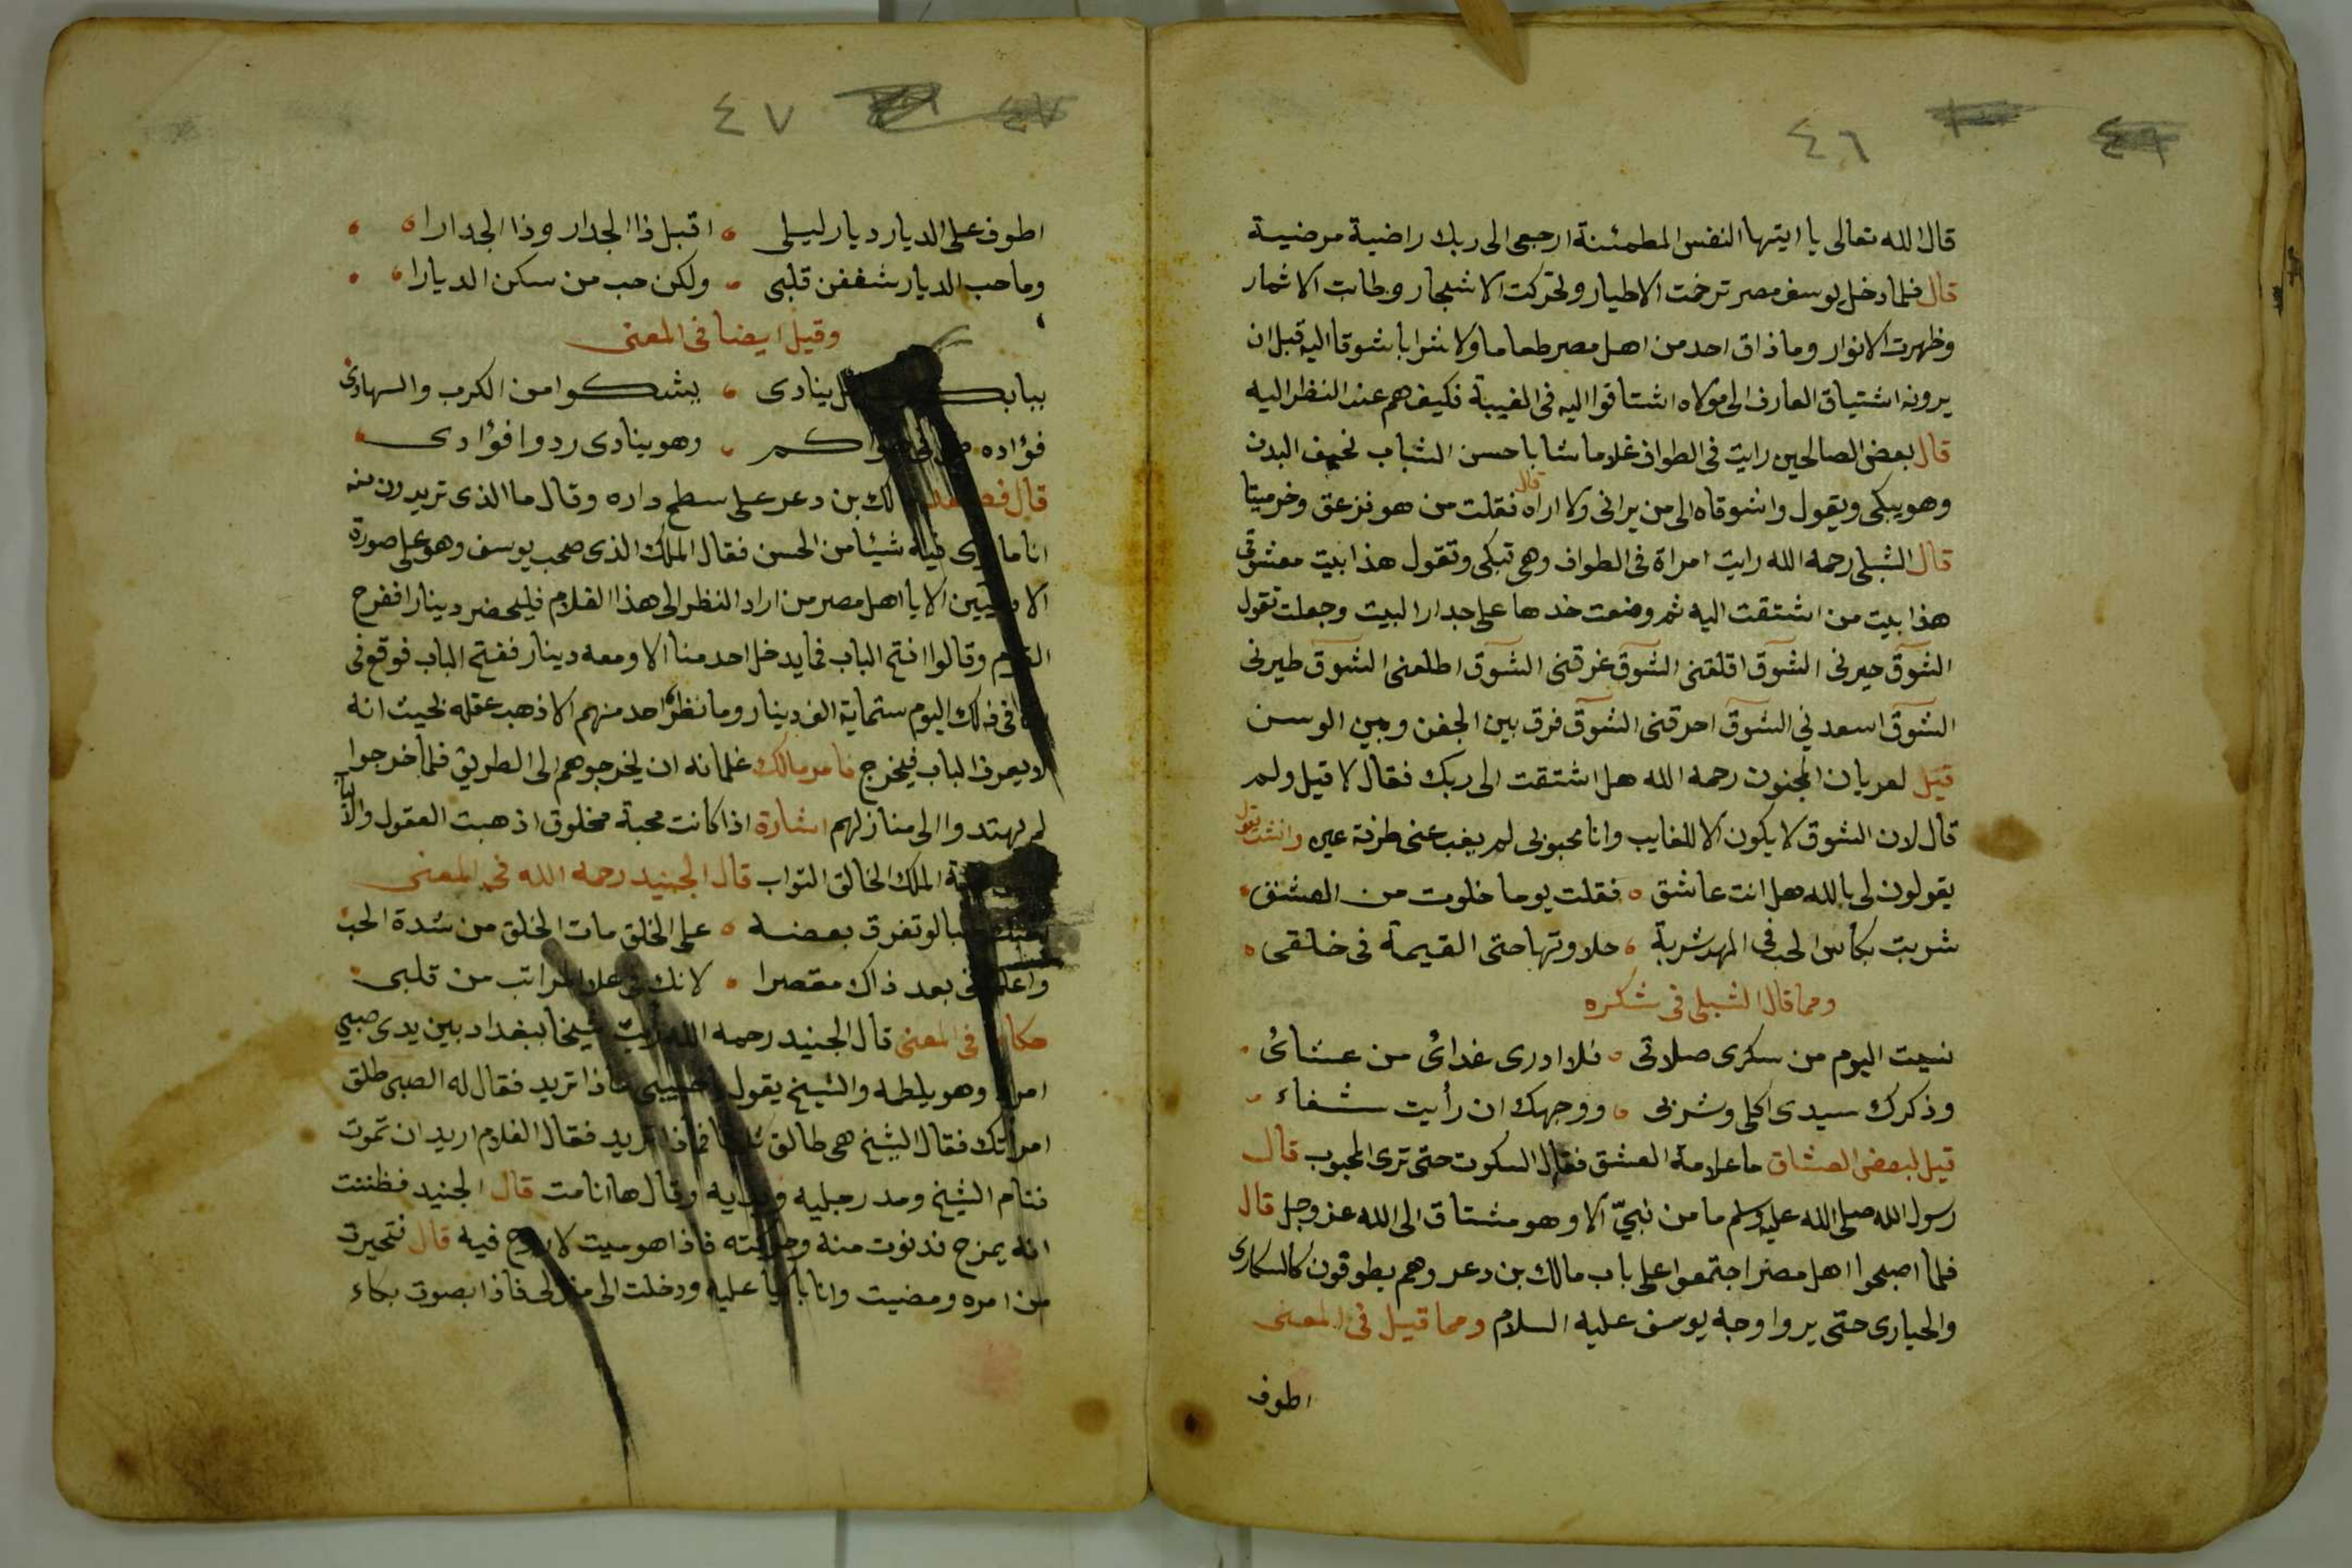 ٤٦
قال الله تعالى يا ايتها النفس المطمئنة ارجعى الى ربك راضية مرضية
قال فلما دخل يوسف مصر ترنمت الاطيار وتحركت الاشجار وطابت الاثمار
وظهرت الانوار وما ذاق احد من اهل مصر طعاما ولا شرابا شوقا اليه قبل ان
يرونه اشتياق العارف الى مولاه اشتاقوا اليه فى الغيبة فكيف هم عند النظر اليه
قال بعض الصالحين رايت فى الطواف غلاما شابا حسن الشباب نحيف البدن
وهو يبكى ويقول واشوقاه الى من يرانى ولا اراه قال فقلت من هو فزعق وخر ميتا
قال الشبلى رحمه الله رايت امراة فى الطواف وهى تبكى وتقول هذا بيت معشوقى
هذا بيت من اشتقت اليه ثم وضعت خدها على جدار البيت وجعلت تقول
الشوق حيرنى الشوق اقلقنى الشوق غرقنى الشوق اطلعنى الشوق طيرنى
الشوق اسعدني الشوق احرقنى الشوق فرق بين الجفن وبين الوسن
قيل لعريان المجنون رحمه الله هل اشتقت الى ربك فقال لا قيل ولم
قال لان الشوق لا يكون الا للغايب وانا محبوبى لم يغب عنى طرفة عين وانشد يقول
يقولون لى بالله هل انت عاشق فقلت يوما خلوت من العشق
شربت بكاس الحب فى المهد شربة حلاوتها حتى القيمة فى خلقى
ومما قال الشبلى فى شكره
نسيت اليوم من سكرى صلاتى فلا ادرى غدائ من عشائ
وذكرك سيدى اكلى وشربى ووجهك ان رأيت شفاء
قيل لبعض العشاق ما علامة العشق فقال السكوت حتى ترى المحبوب قال
رسول الله صلى الله عليه وسلم ما من نبيّ الا وهو مشتاق الى الله عز وجل قال
فلما اصبحوا اهل مصر اجتمعوا على باب مالك بن دعر وهم يطوفون كالسكارى
والحيارى حتى يروا وجه يوسف عليه السلام ومما قيل فى المعنى
اطوف
٤٧
اطوف على الديار ديار ليلى اقبل ذا الجدار وذا الجدارا
وما حب الديار شغفن قلبى ولكن حب من سكن الديارا
وقيل ايضا فى المعنى
ببابك ينادى يشكوا من الكرب والسهادى
فؤاده وهو ينادى ردوا فؤادى
قال لك بن دعر على سطح داره وقال ما الذى تريدون منه
انا ما ارى فيه شيئا من الحسن فقال الملك الذى صحب يوسف وهو على صورة
الادميين الا يا اهل مصر من اراد النظر الى هذا الغلام فليحضر دينارا ففرح
القوم وقالوا افتح الباب فما يدخل احد منا الا ومعه دينار ففتح الباب فوقع فى
فى ذلك اليوم ستماية الف دينار وما نظره احد منهم الا ذهب عقله بحيث انه
لا يعرف الباب فيخرج فامر مالك غلمانه ان يخرجوهم الى الطريق فلما خرجوا
لم يهتدوا الى منازلهم اشارة اذا كانت محبة مخلوق اذهبت العقول والالباب
الملك الخالق التواب قال الجنيد رحمه الله فى المعنى
لو تفرق بعضه على الخلق مات الخلق من شدة الحب
بعد ذاك مقصرا لانك فى اعلا المراتب من قلبى
حكاية فى المعنى قال الجنيد رحمه الله رايت شيخا ببغداد بين يدى صبي
امرد وهو يلطمه والشيخ يقول يا حبيبى ماذا تريد فقال له الصبى طلق
امراتك فقال الشيخ هى طالق ثلاثا فماذا تريد فقال الغلام اريد ان تموت
فنام الشيخ ومد رجليه ويديه وقال ها انا مت قال الجنيد فظننت
انه يمزح فدنوت منه وحركته فاذا هو ميت لا روح فيه قال فتحيرت
من امره ومضيت وانا باكيا عليه ودخلت الى منزلى فاذا بصوت بكاء